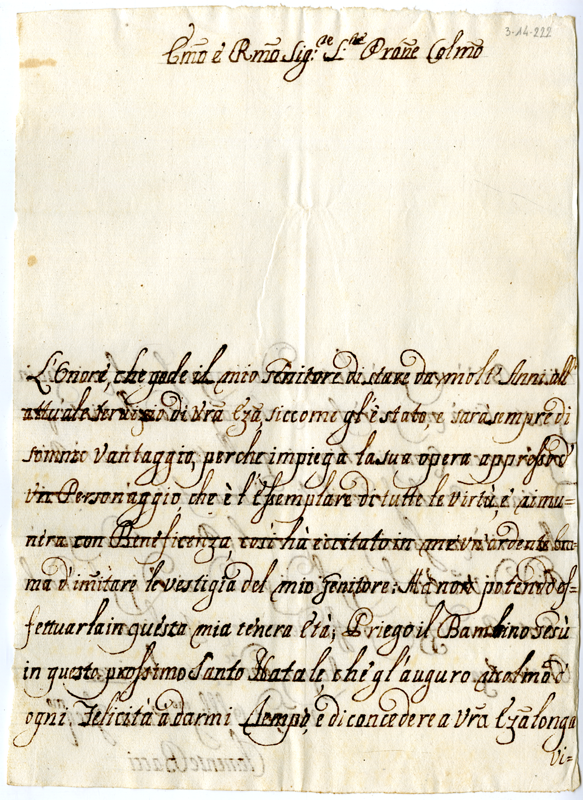 3-14-222
Emõ è Rmõ Sig.re S.re Prõne Colmõ
L'Onore, che gode il mio Genitore di stare da molt' Anni all'
attuale servizio di Vrã Ezã, siccome gl'è stato, e sarà sempre di
sommo Vantaggio, perche impiega la sua opera appresso d'
vn Personaggio, che è l'Esemplare di tutte le virtù, e
con Beneficenza, così hà eccitato in me vn'ardente bra=
ma d'imitare le vestigia del mio Genitore: Mà non potendo ef=
fettuarla in questa mia tenera Età; Priego il Bambino Gesù
in questo prossimo Santo Natale che gl'auguro colmo d'
ogni Felicità à darmi Tempo, e di concedere a Vrã Ezã longa
vi=